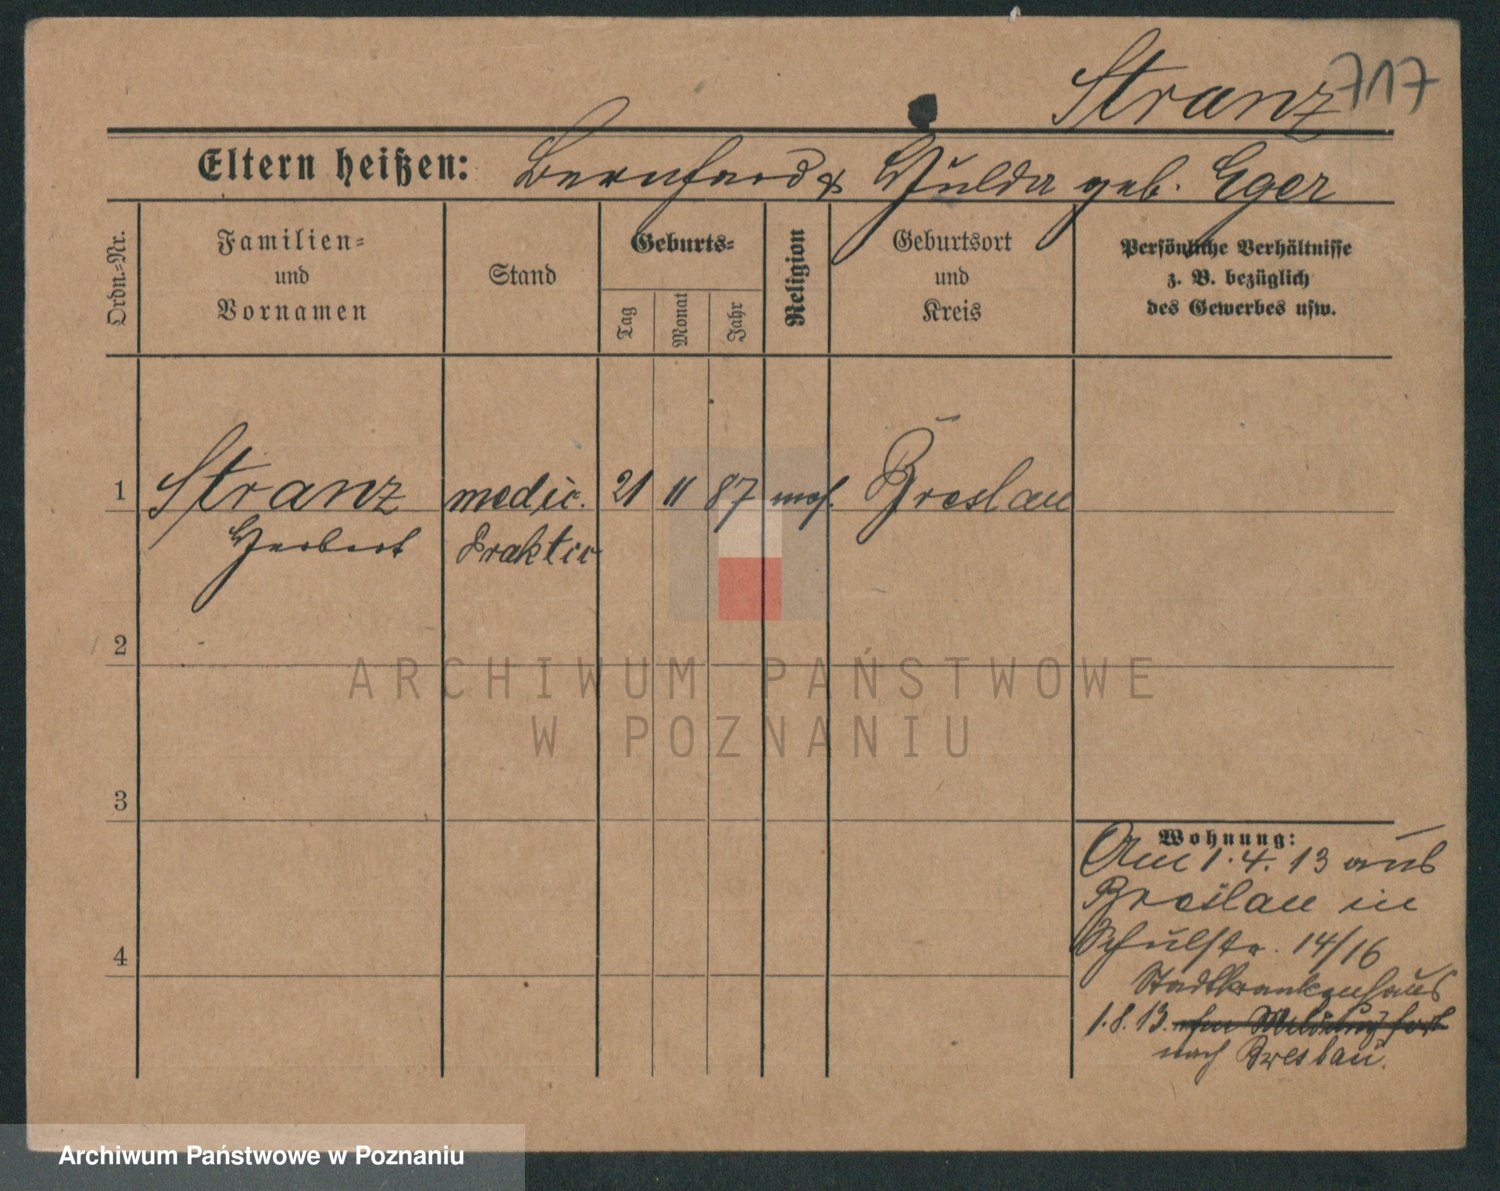 Stranz 717
Eltern heißen: Bernhard & Hulda geb. Eger
Ordn.-Nr.
Familien-
und
Vornamen
Stand
Geburts-
Tag
Monat
Jahr
Religion
Geburtsort
und
Kreis
Persönliche Verhältnisse
z. B. bezüglich
des Gewerbes usw.
1 Stranz medic. 21 11 87 mos. Breslau
Herbert Praktic
2
ARCHIWUM PAŃSTWOWE
W POZNANIU
3
Wohnung:
Am 1.4.13 aus
Breslau in
Schulstr. 14/16
4
Stadtkrankenhaus
1.8.13. ohne Meldung fort
nach Breslau.
Archiwum Państwowe w Poznaniu